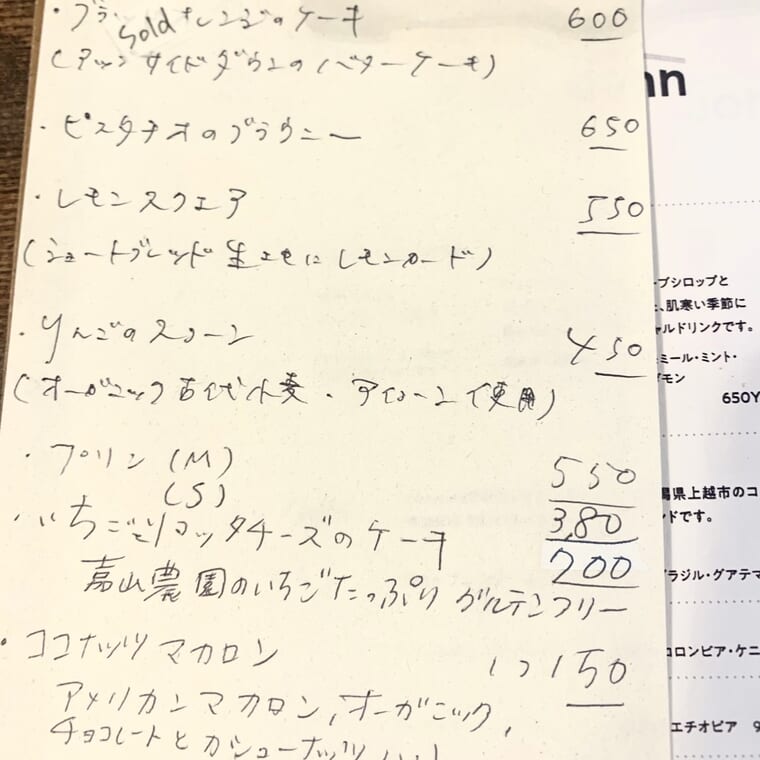 ・ブラッ sold オレンジのケーキ 600
(アップサイドダウンのバターケーキ)
・ピスタチオのブラウニー 650
・レモンスクエア 550
(ショートブレッド生地にレモンカード)
・りんごのスコーン 450
(オーガニック古代小麦・アインコーン使用)
・プリン (M) 550
(S) 380
・いちごとリコッタチーズのケーキ 700
嘉山農園のいちごたっぷり グルテンフリー
・ココナッツマカロン 1つ150
アメリカンマカロン,オーガニック,
チョコレートとカシューナッツ
nn
プシロップと
、肌寒い季節に
ャルドリンクです。
ミール・ミント・
650Y
潟県上越市のコ
ンドです。
ブラジル・グアテマ
コロンビア・ケニ
エチオピア 9